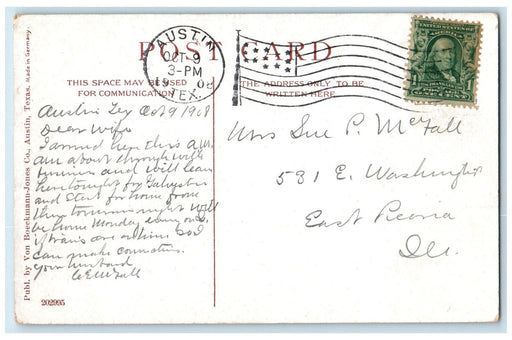 POST CARD
AUSTIN
OCT 9
3-PM
19 08
TEX.
THIS SPACE MAY BE USED
FOR COMMUNICATION
THE ADDRESS ONLY TO BE
WRITTEN HERE
Austin Tex Oct 9 1908
Dear Wife
I arrived here this a.m.
am about through with
business and will leave
here tonight for Galveston
and start for home from
there tomorrow night will
be home Monday
if trains are on time and I
can make connections
Your husband
C E McFall
Mrs Sue P. McFall
531 E. Washington
East Peoria
Ill.
Publ. by Von Boeckmann-Jones Co., Austin, Texas. Made in Germany.
202995
1